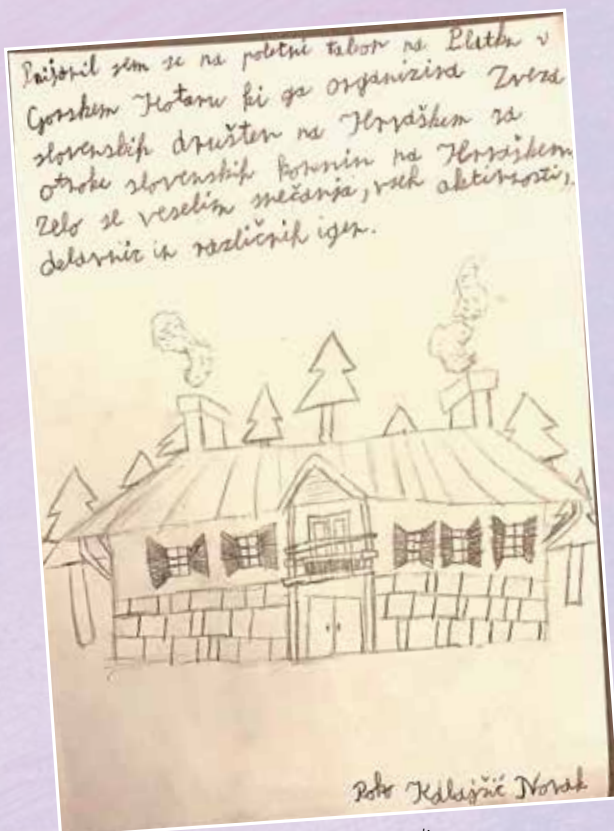 Prijavil sem se na poletni tabor na Platku v
Gorskem Kotaru ki ga organizira Zveza
slovenskih društev na Hrvaškem za
otroke slovenskih korenin na Hrvaškem.
Zelo se veselim srečanja, vseh aktivnosti,
delavnic in različnih iger.
Roko Kalajžić Novak